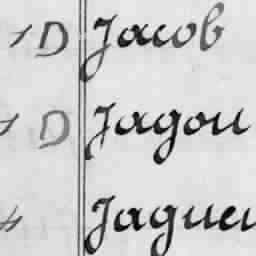 1 D Jacob
1 D Jagou
4 Jagueu